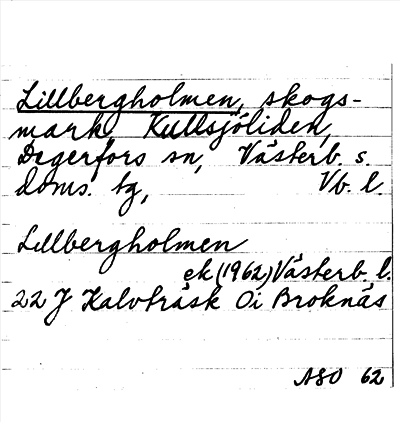 Lillbergholmen, skogs-
mark, Kullsjöliden,
Degerfors sn, Västerb. s.
doms. tg, Vb. l.
Lillbergholmen
ek (1962) Västerb. l.
22 J Kalvträsk Oi Broknäs
ASO 62